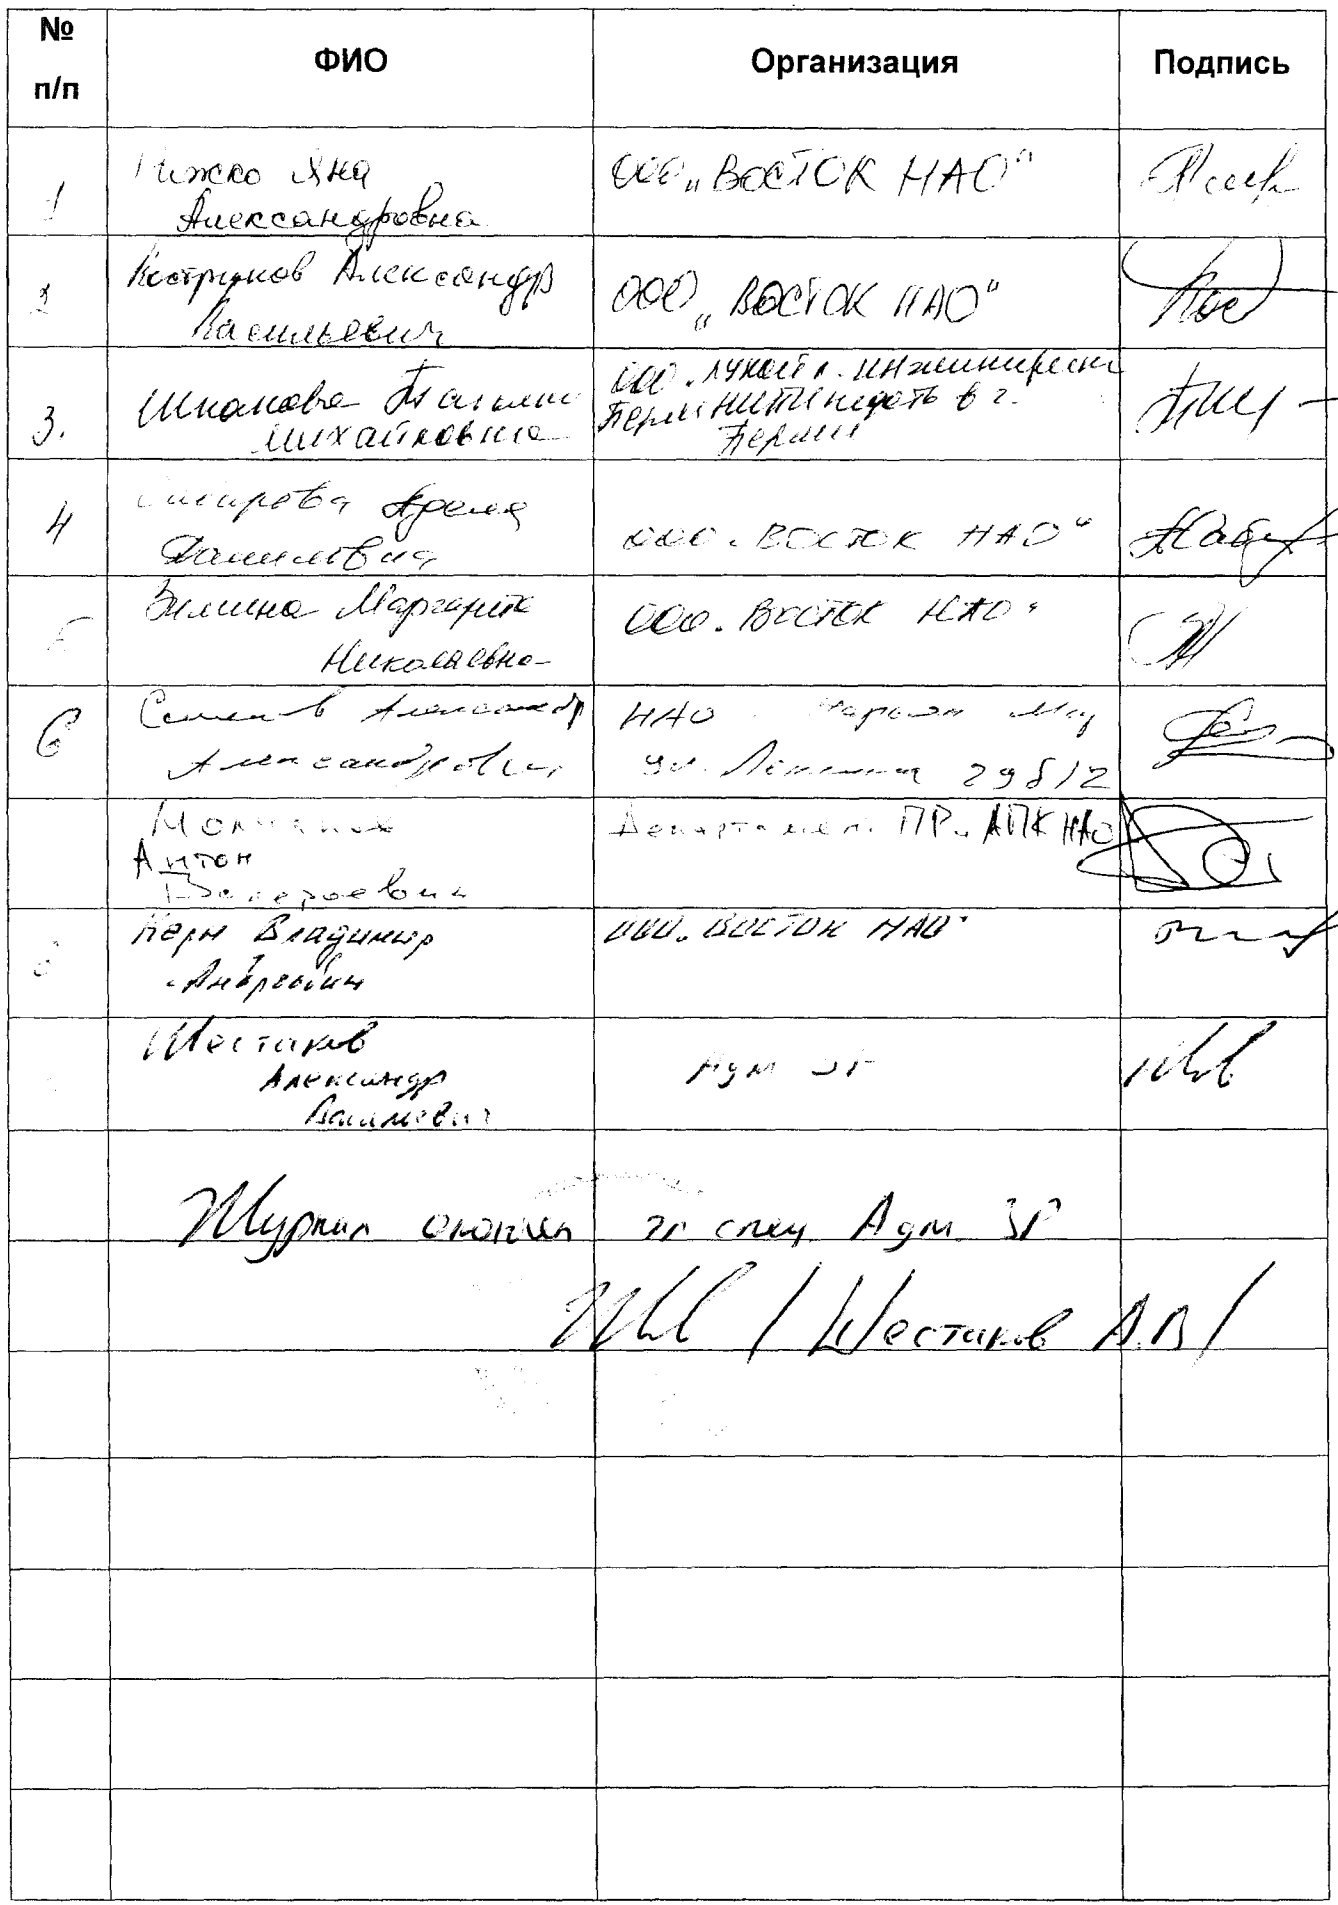 №
п/п
ФИО
Организация
Подпись
1
Яна
Александровна
ООО „ВОСТОК НАО"
2
Александр
Васильевич
ООО „ВОСТОК НАО"
3.
Татьяна
Михайловна
ООО „ЛУКОЙЛ-Инжиниринг"
ПермНИПИнефть в г.
Перми
4
Даниловна
ООО „ВОСТОК НАО"
5
Зимина Маргарита
Николаевна
ООО „ВОСТОК НАО"
6
Семенов Александр
Александрович
НАО Нарьян-Мар
ул. Ленина 29б/2
Антон
Валерьевич
Департамент ПР и АПК НАО
8
Керн Владимир
Андреевич
ООО „ВОСТОК НАО"
Шестаков
Александр
Адм ЗР
Журнал окончен гл спец. Адм. ЗР
/ Шестаков А.В /